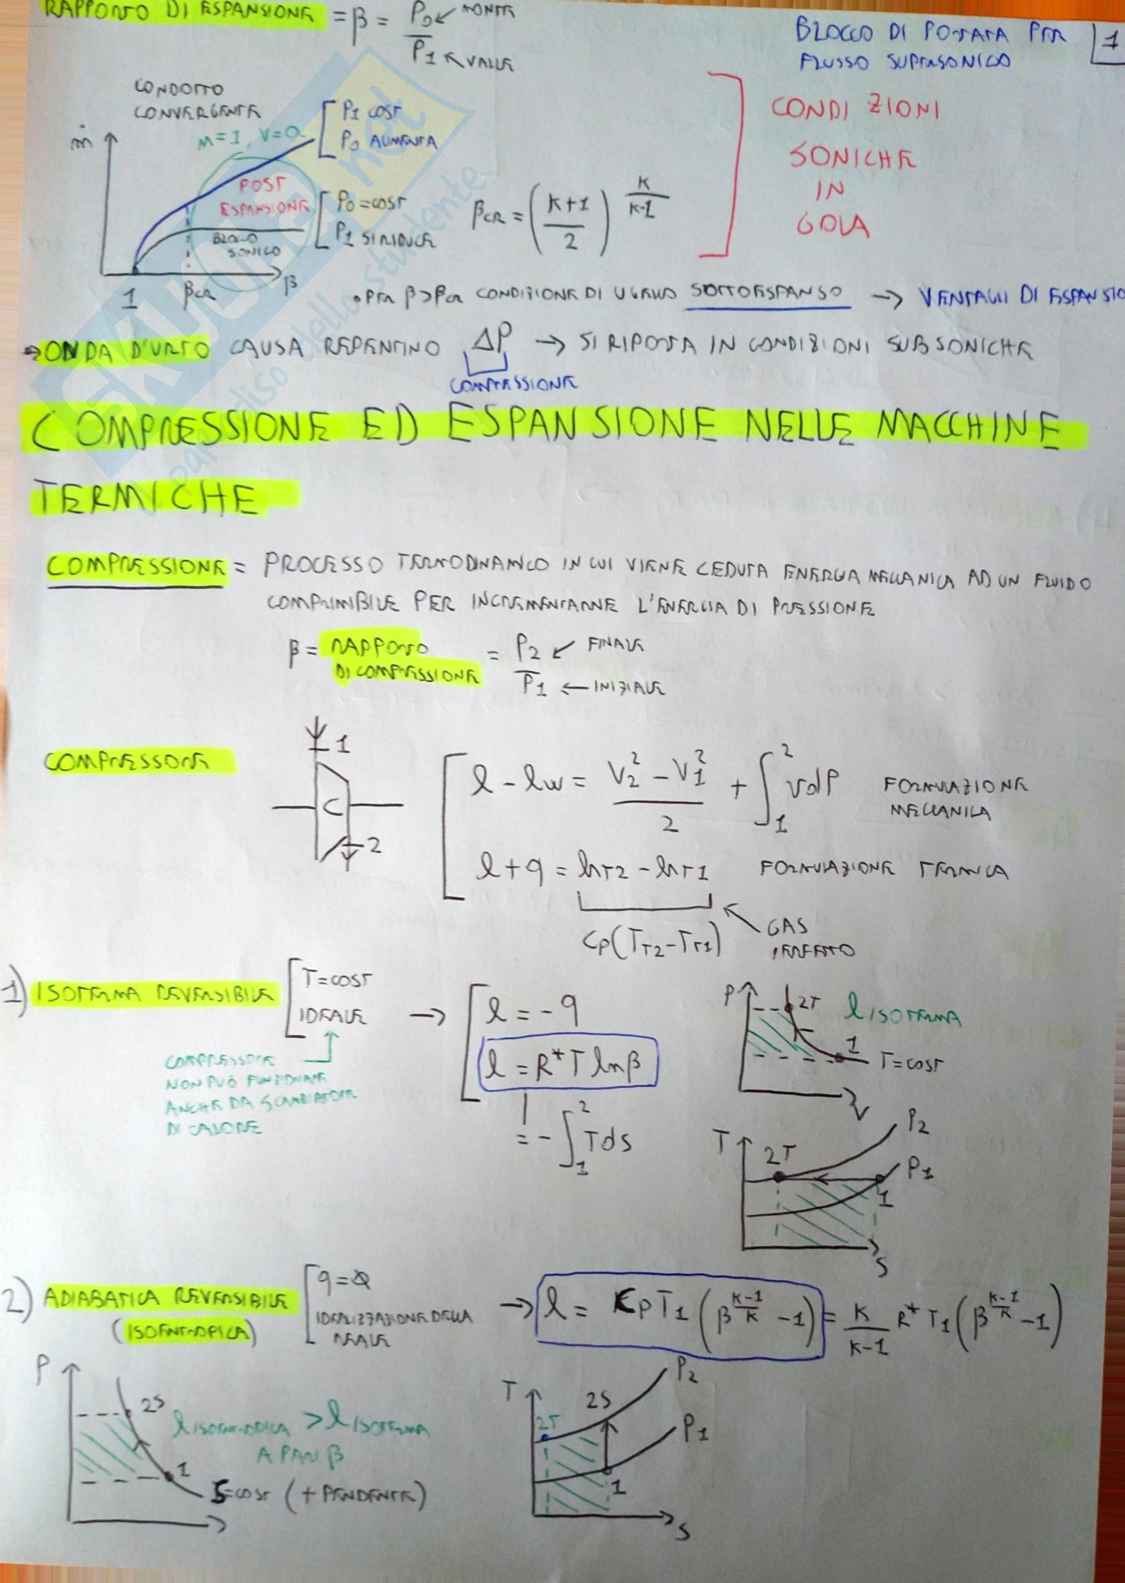 RAPPORTO DI ESPANSIONE = β = P0 ← MONTE
P1 ← VALLE
BLOCCO DI PORTATA PER
FLUSSO SUPERSONICO
1
CONDOTTO
CONVERGENTE
ṁ
M=1, V=0
P1 COST
P0 AUMENTA
POST
ESPANSIONE
P0=COST
P1 SI RIDUCE
BLOCCO
SONICO
1 βCR β
βCR = ((K+1)/2)^(K/(K-1))
CONDIZIONI
SONICHE
IN
GOLA
• PER β>βCR CONDIZIONE DI UGELLO SOTTOESPANSO → VENTAGLI DI ESPANSIO
→ ONDA D'URTO CAUSA REPENTINO ΔP → SI RIPORTA IN CONDIZIONI SUBSONICHE
COMPRESSIONE
COMPRESSIONE ED ESPANSIONE NELLE MACCHINE
TERMICHE
COMPRESSIONE = PROCESSO TERMODINAMICO IN CUI VIENE CEDUTA ENERGIA MECCANICA AD UN FLUIDO
COMPRIMIBILE PER INCREMENTARNE L'ENERGIA DI PRESSIONE
β = RAPPORTO DI COMPRESSIONE = P2 ← FINALE
P1 ← INIZIALE
COMPRESSORE
1
C
2
l - lw = (V2² - V1²)/2 + ∫₁² vdP FORMULAZIONE
MECCANICA
l + q = hT2 - hT1 FORMULAZIONE TERMICA
CP(TT2-TT1)
GAS
PERFETTO
1) ISOTERMA REVERSIBILE
T=COST
IDEALE
→ l = -q
l = R* T ln β
= - ∫₁² Tds
COMPRESSORE
NON PUÒ FUNZIONARE
ANCHE DA SCAMBIATORE
DI CALORE
P
2T
l ISOTERMA
1
T=COST
V
T
2T
P2
P1
1
S
2) ADIABATICA REVERSIBILE
(ISOENTROPICA)
q=0
IDEALIZZAZIONE DELLA
REALE
→ l = CP T1 (β^((K-1)/K) - 1) = K/(K-1) R* T1 (β^((K-1)/K) - 1)
P
2S
l ISOENTROPICA > l ISOTERMA
A PARI β
1
S=COST (+ PENDENTE)
T
2T
2S
P2
P1
1
S